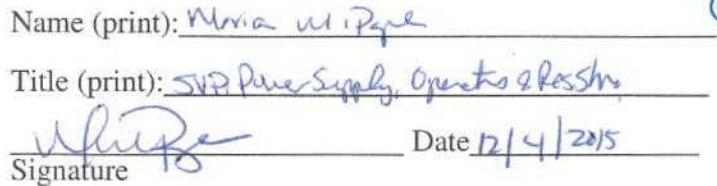 Name (print): Maria M. Pope
Title (print): SVP, Power Supply, Operations & Res Str
Date 12/4/2015
Signature